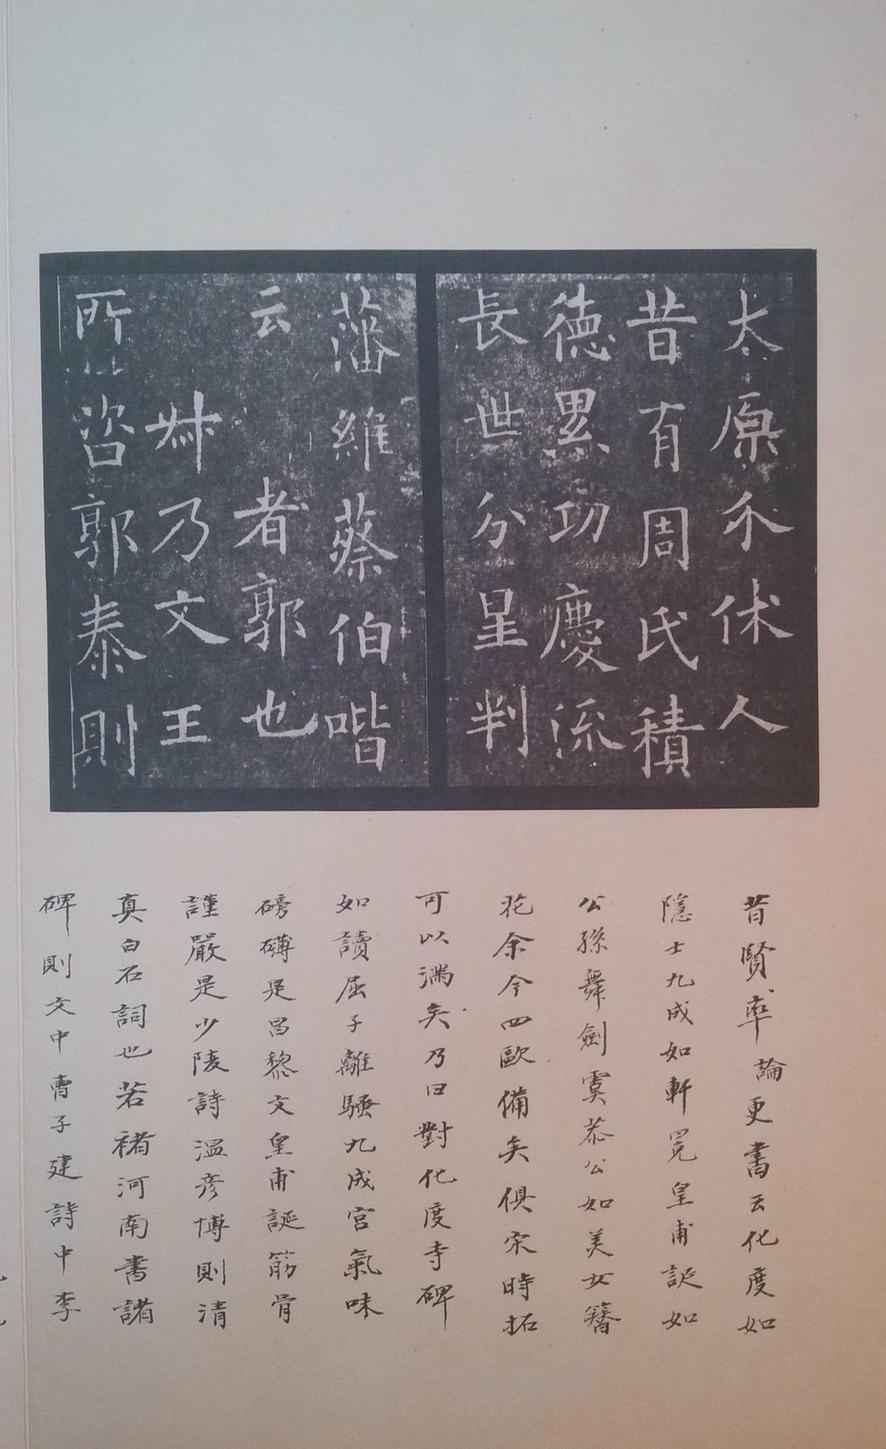 太原介休人
昔有周氏積
德累功慶流
長世分星判
藩維蔡伯喈
云 者郭也
叔乃文王
所咨郭泰則
昔賢率論更書云化度如
隱士九成如軒冕皇甫誕如
公孫舞劍虞恭公如美女簪
花余今四歐備矣俱宋時拓
可以滿矣乃曰對化度寺碑
如讀屈子離騷九成宮氣味
磅礴是昌黎文皇甫誕筋骨
謹嚴是少陵詩溫彥博則清
真白石詞也若褚河南書諸
碑則文中曹子建詩中李